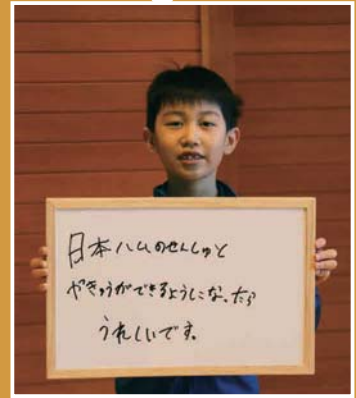 日本ハムのせんしゅと
やきゅうができるようになったら
うれしいです。